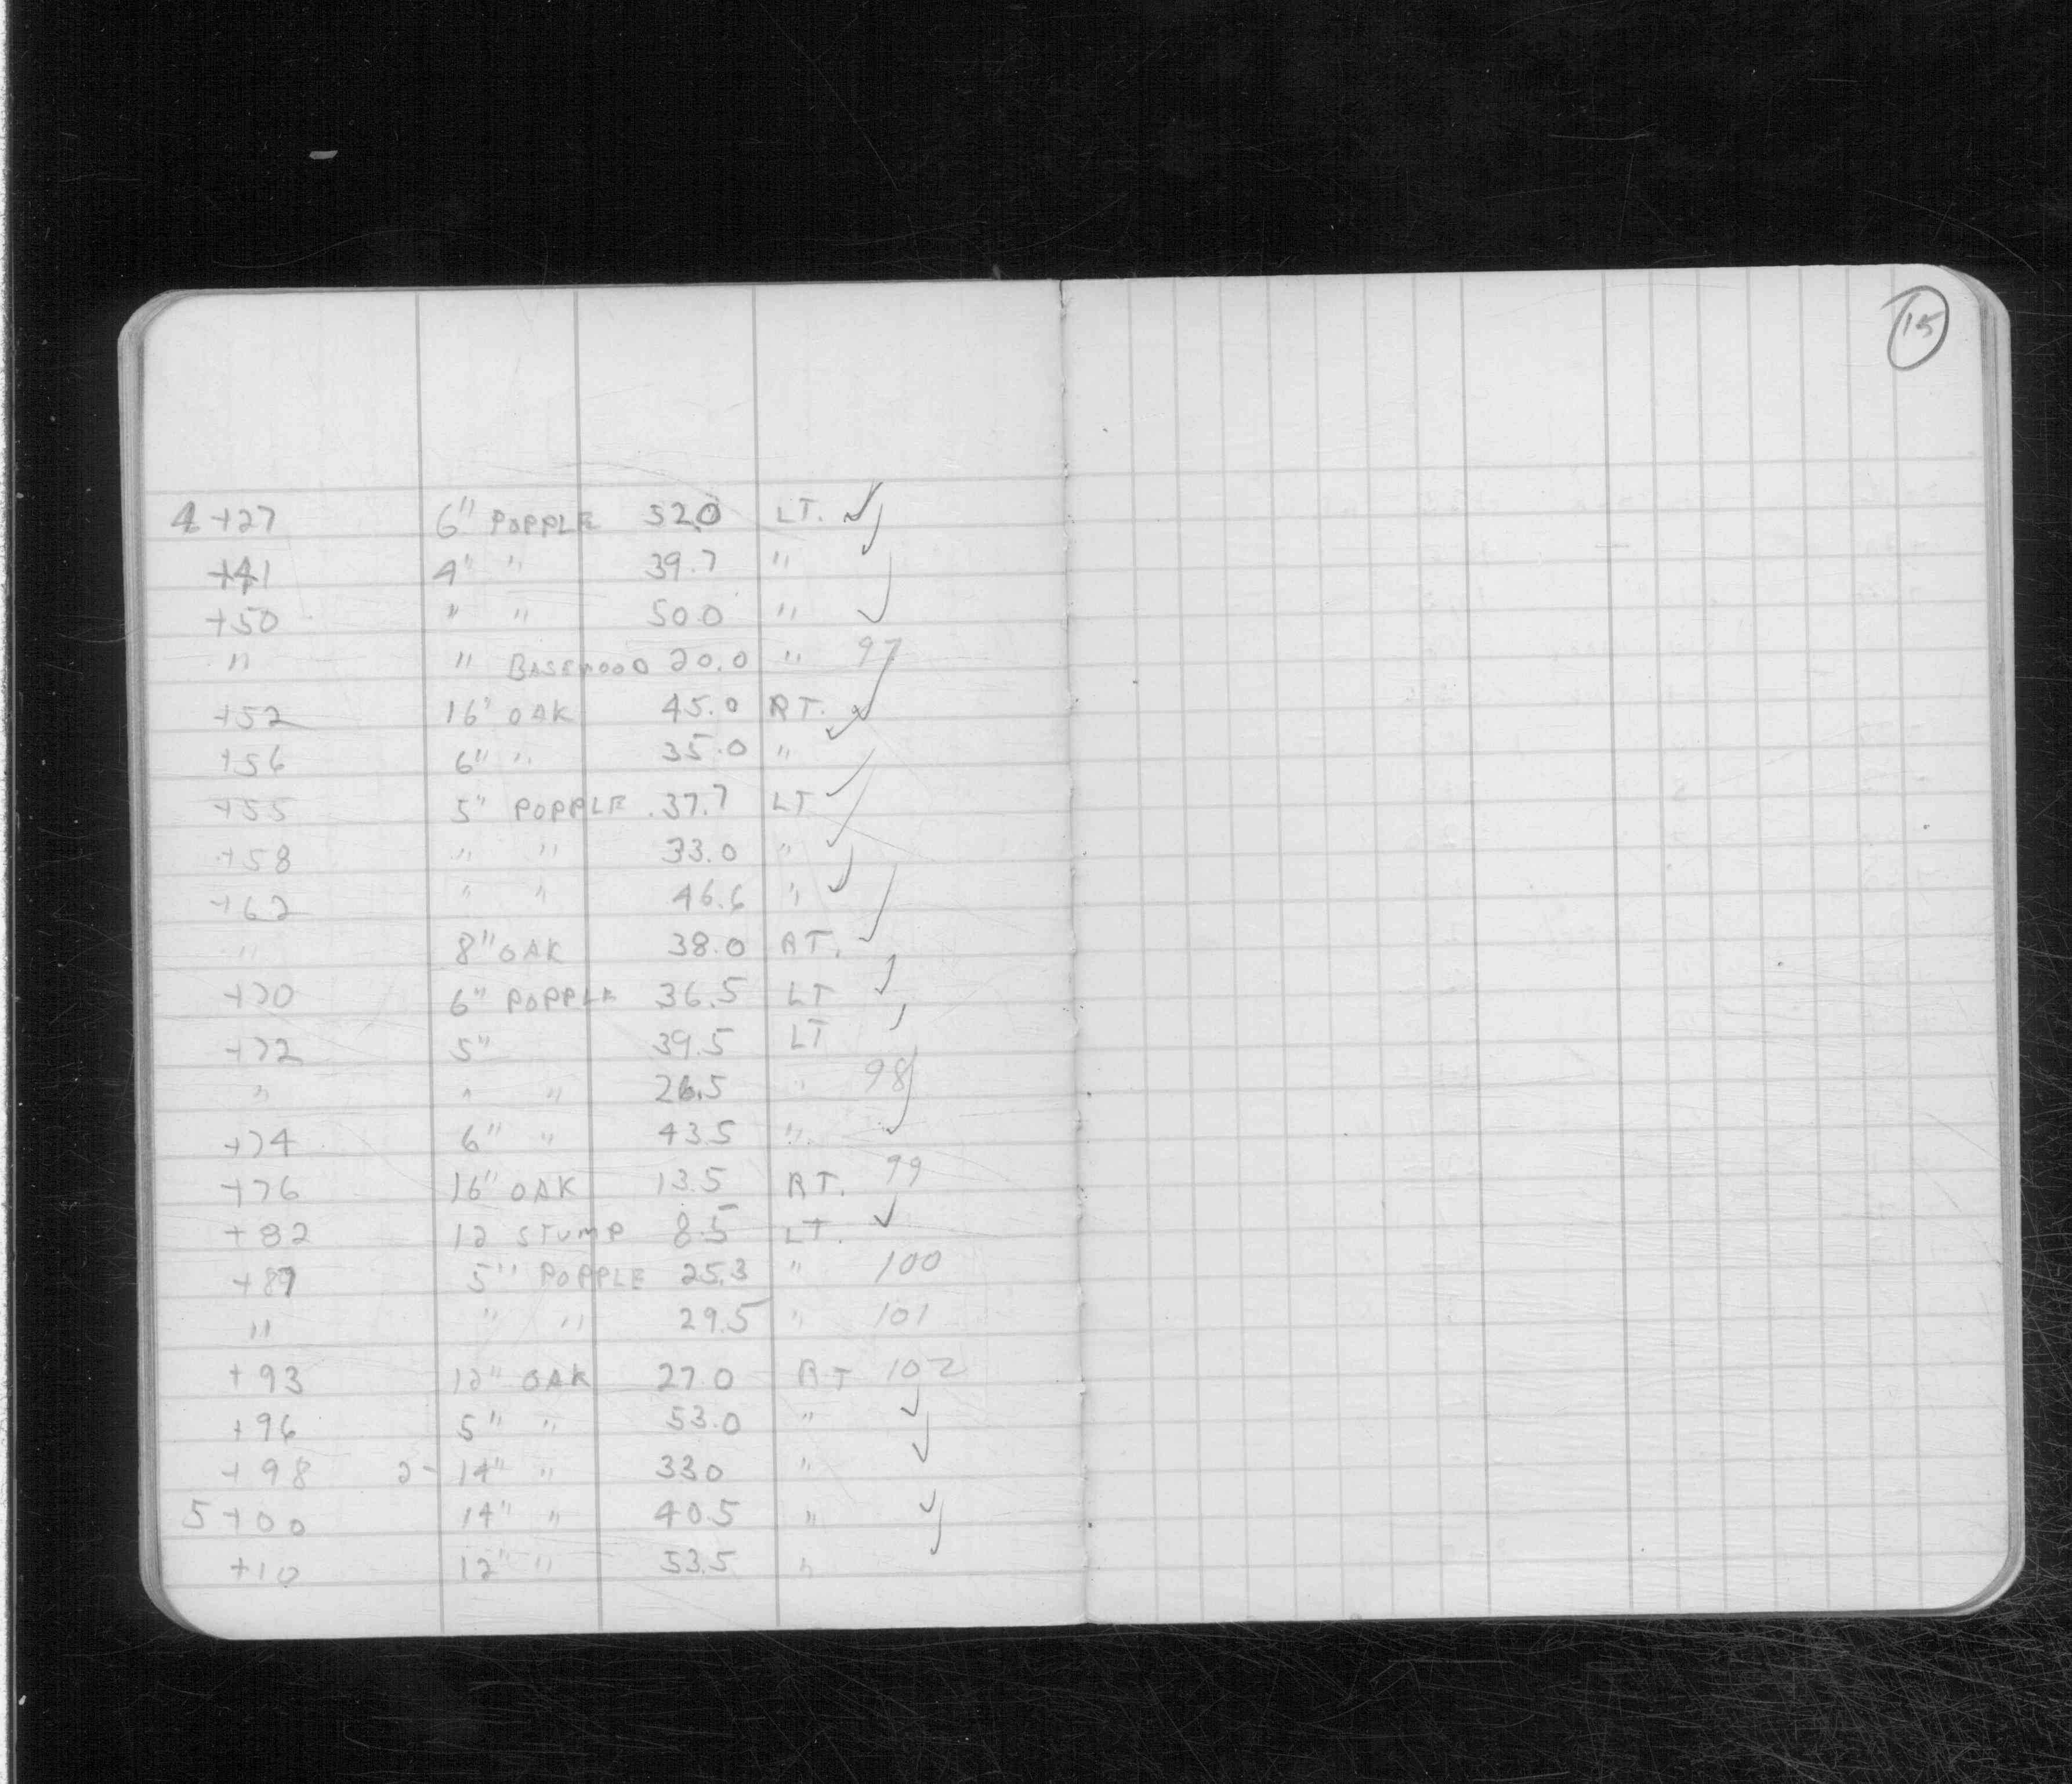 15
4+27 6" POPPLE 52.0 LT. ✓
+41 4" " 39.7 " ✓
+50 " " 50.0 " ✓
" " BASEWOOD 20.0 " 97
+52 16" OAK 45.0 RT. ✓
+56 6" " 35.0 " ✓
+55 5" POPPLE 37.7 LT ✓
+58 " " 33.0 " ✓
+62 " " 46.6 " ✓
" 8" OAK 38.0 RT. ✓
+70 6" POPPLE 36.5 LT ✓
+72 5" 39.5 LT ✓
" " " 26.5 " 98
+74 6" " 43.5 " ✓
+76 16" OAK 13.5 RT. 99
+82 12 STUMP 8.5 LT. ✓
+87 5" POPPLE 25.3 " 100
" " " 29.5 " 101
+93 12" OAK 27.0 RT 102
+96 5" " 53.0 " ✓
+98 2- 14" " 33.0 " ✓
5+00 14" " 40.5 " ✓
+10 12" " 53.5 " ✓